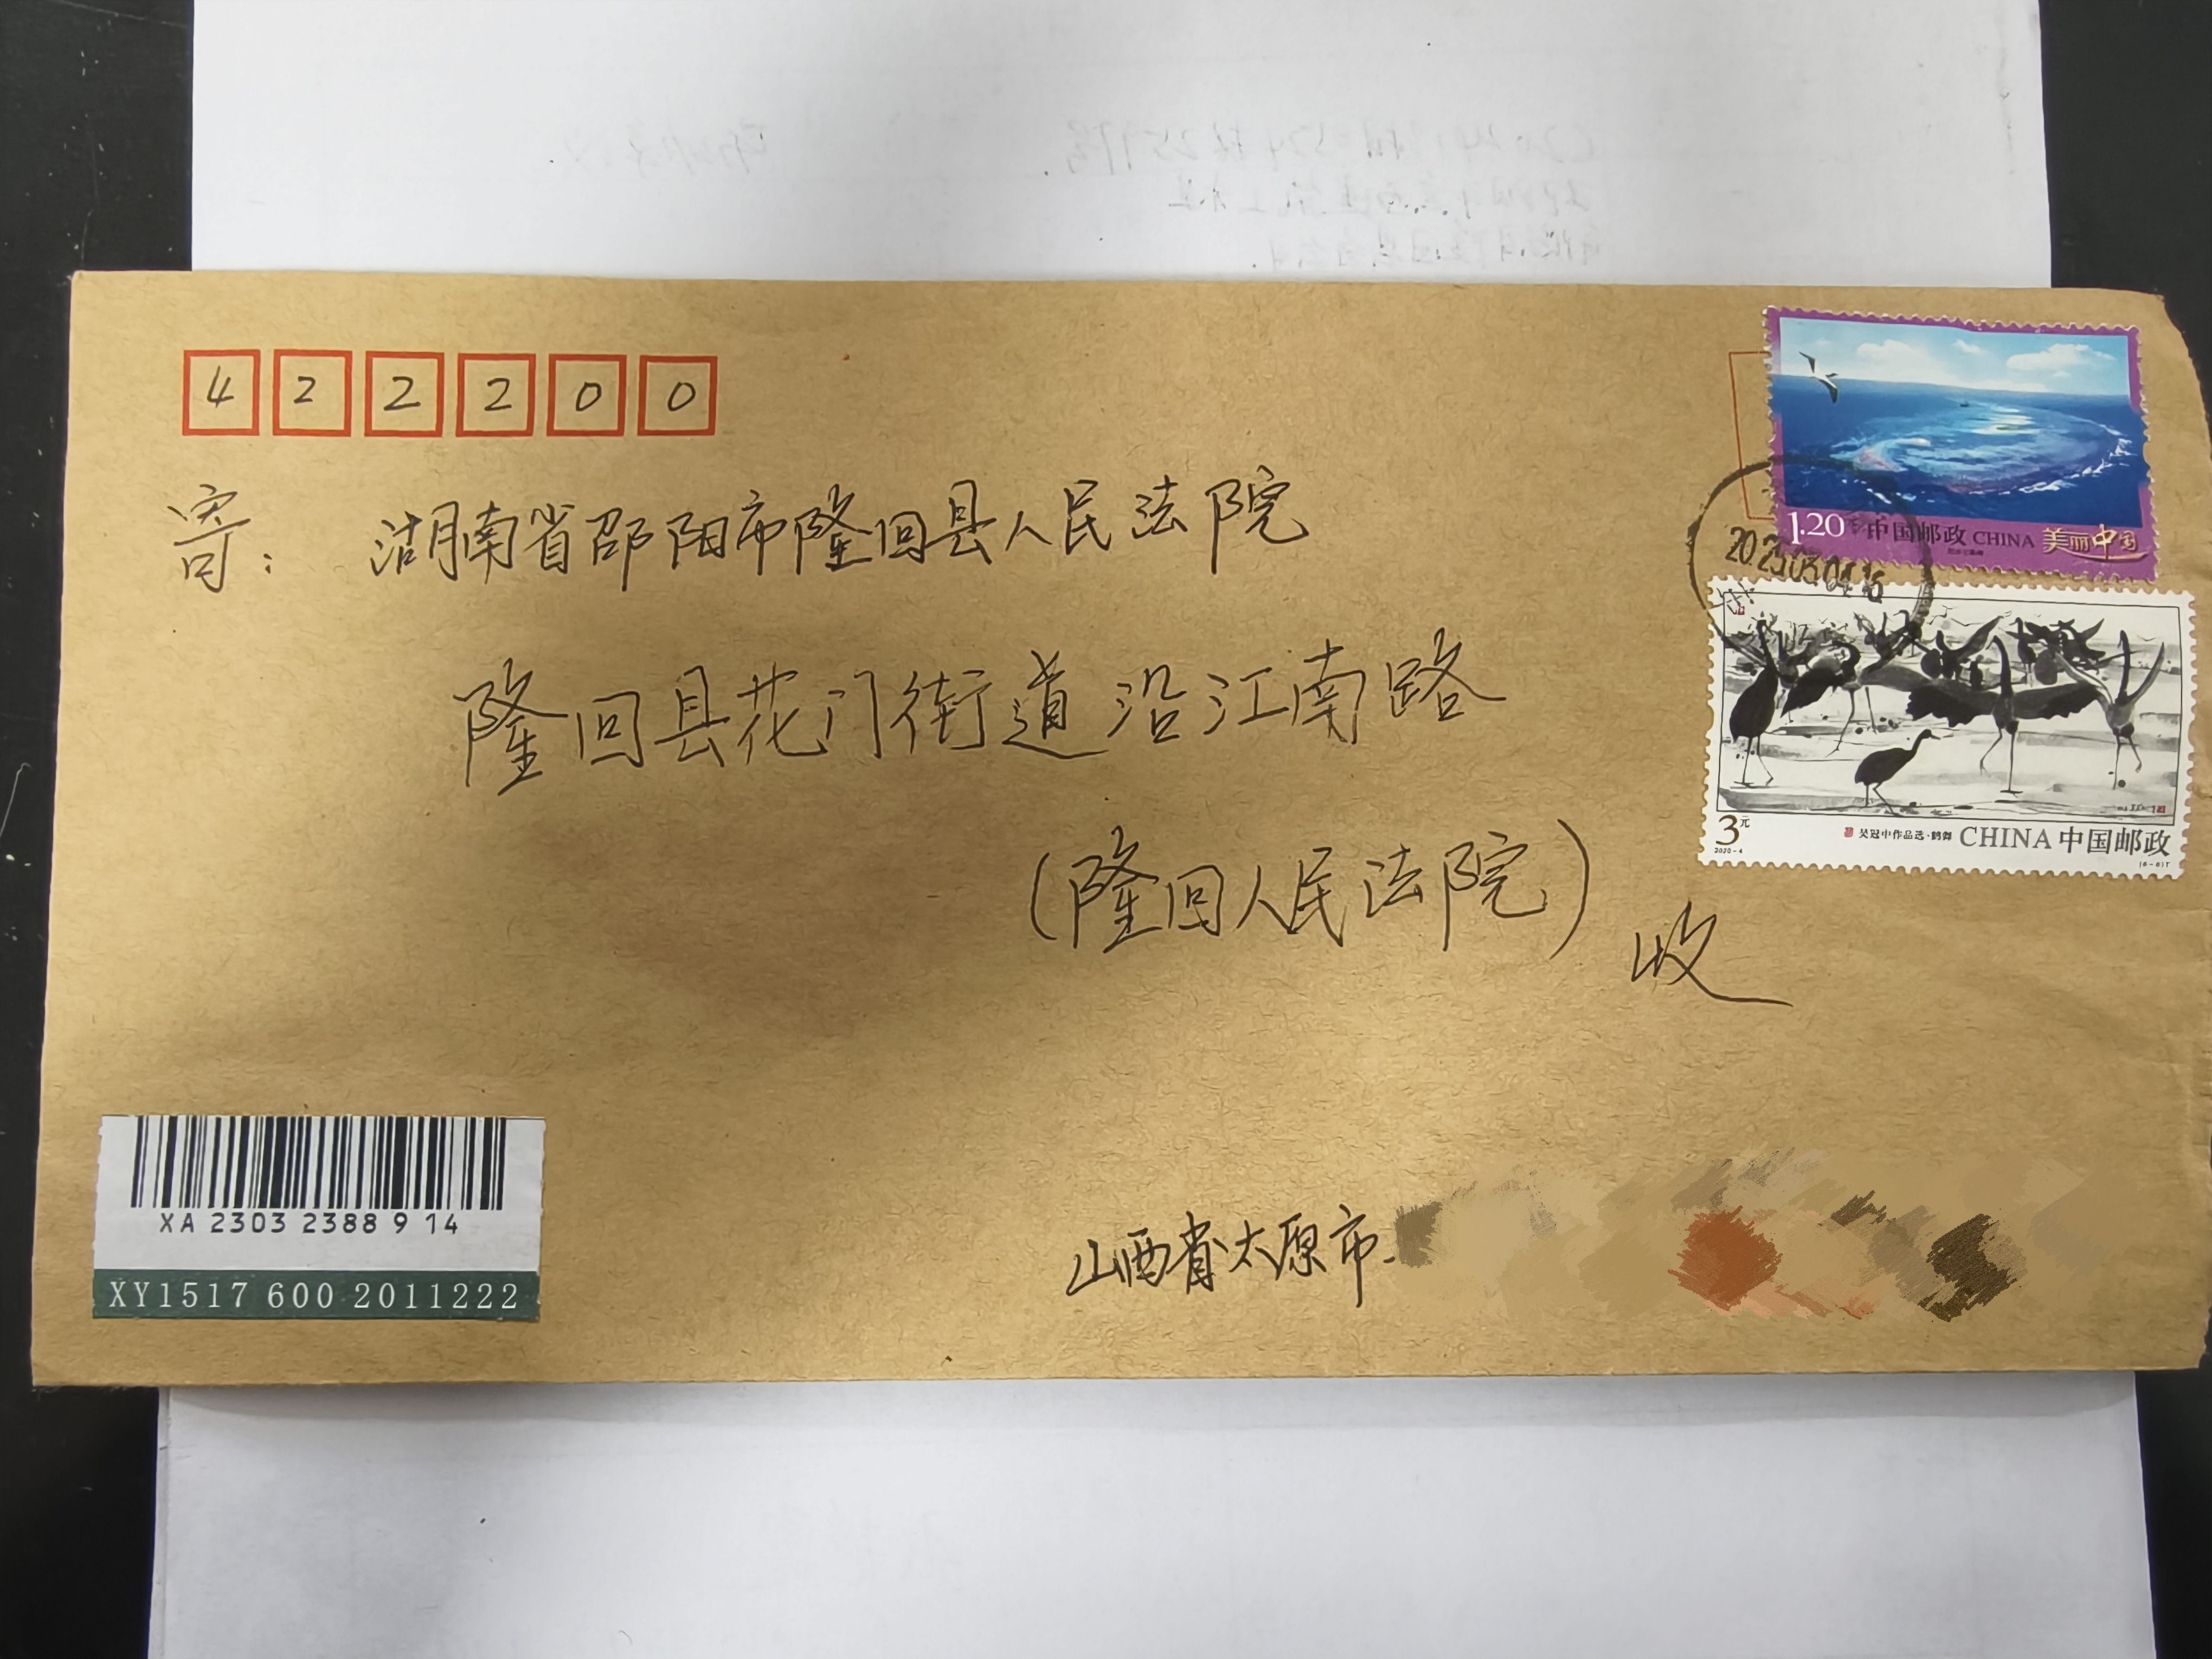 422200
寄：湖南省邵阳市隆回县人民法院
隆回县花门街道沿江南路
(隆回人民法院)
收
1.20 中国邮政 CHINA 美丽中国
3元
2020-4
吴冠中作品选·鹤舞 CHINA 中国邮政
(6-6)T
XA 2303 2388 9 14
XY1517 600 2011222
山西省太原市